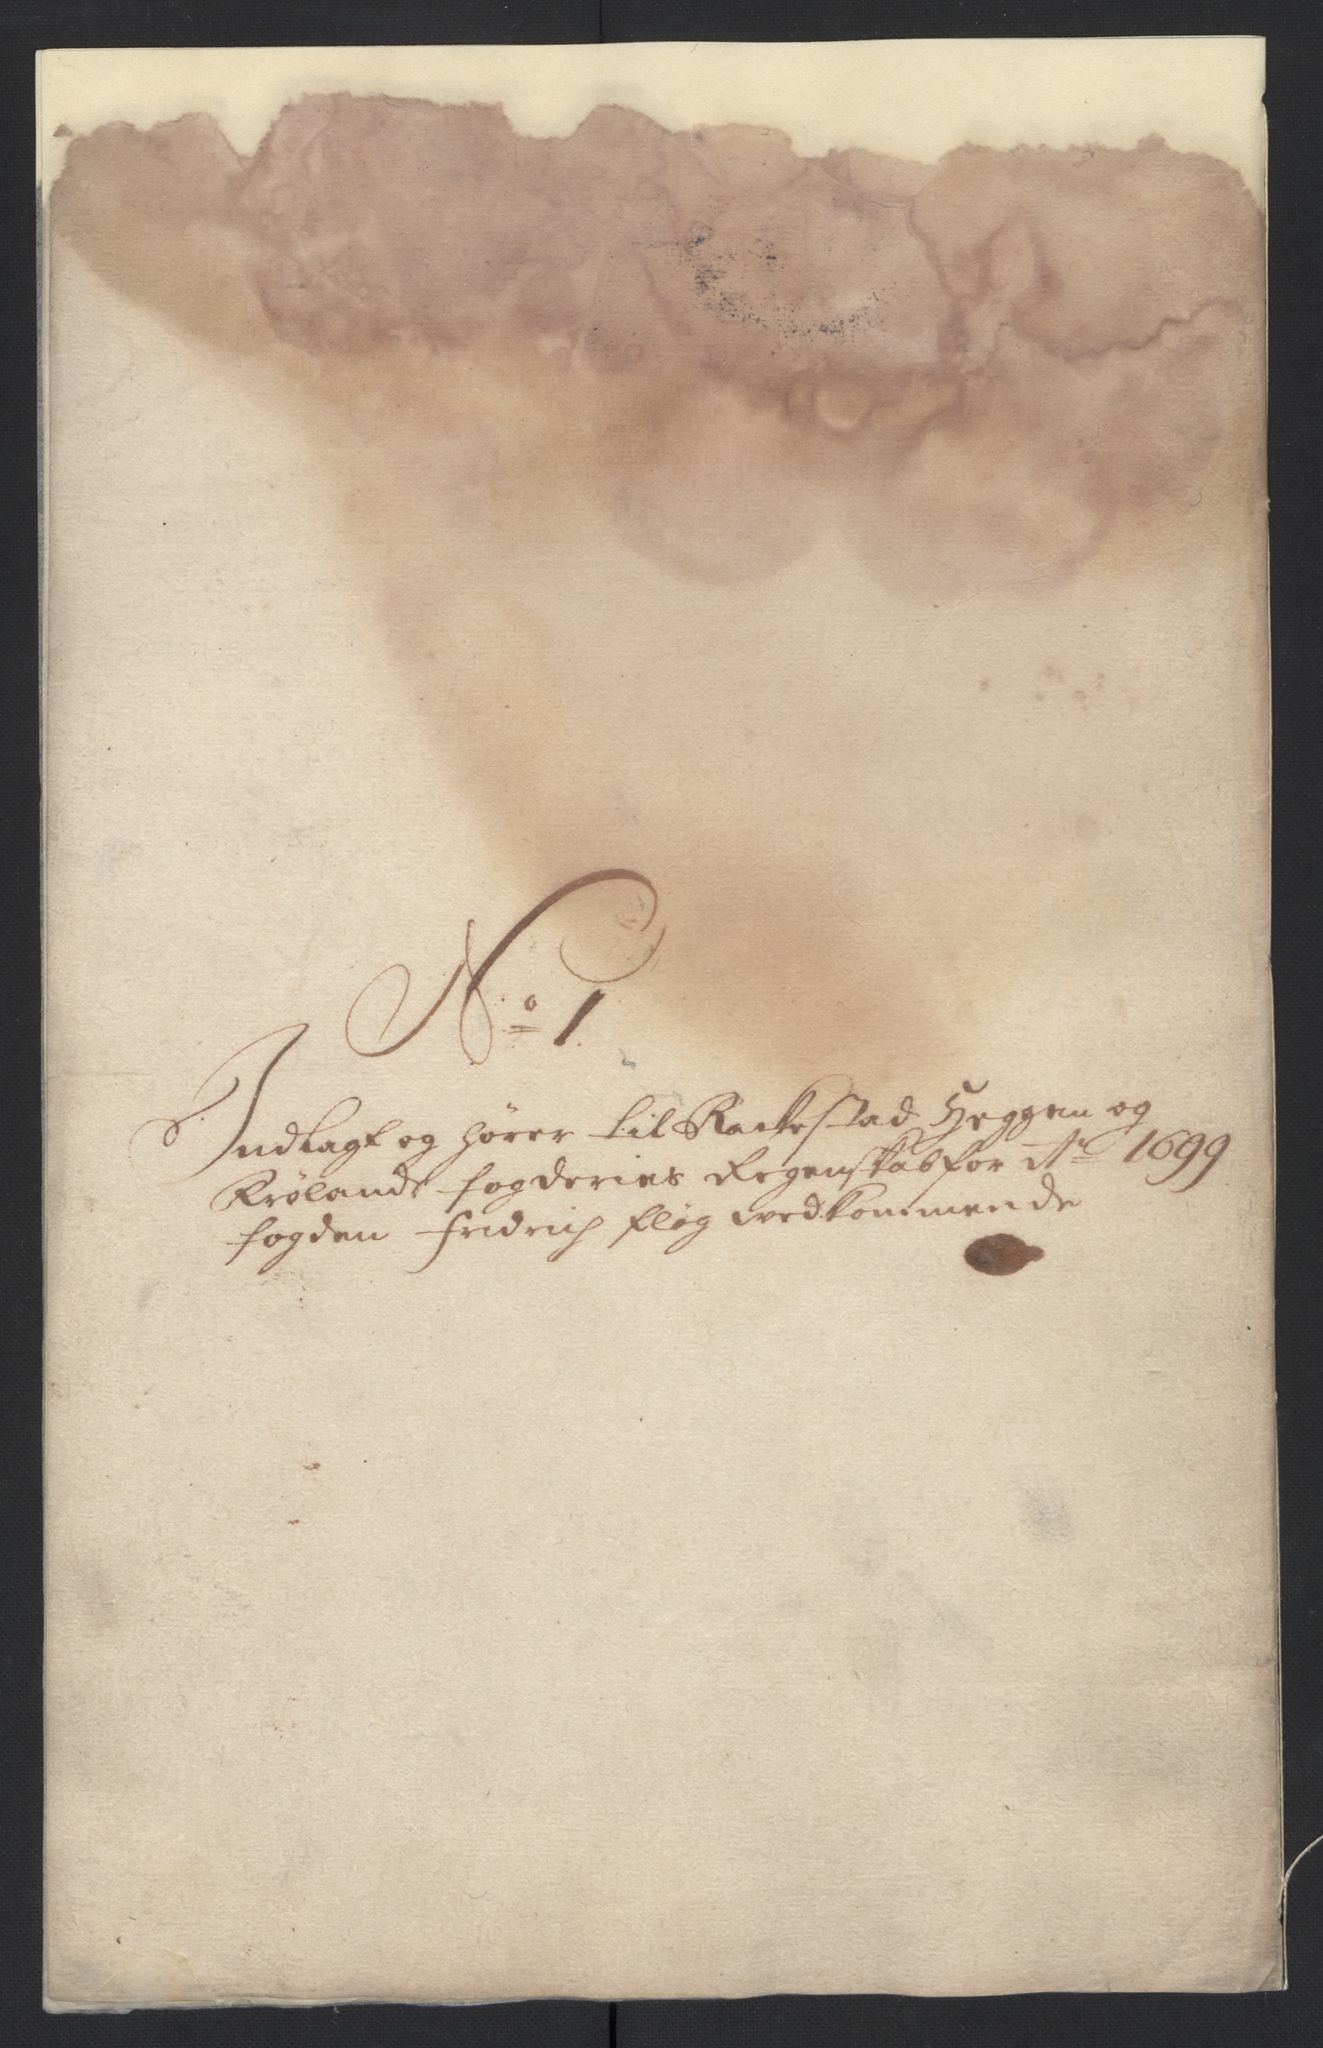 No 1
Indlagt og hører til Rackestad Heggen og
Frølands fogderies Regenschab for Ao 1699
fogden Fridrich Fløg vedkommende